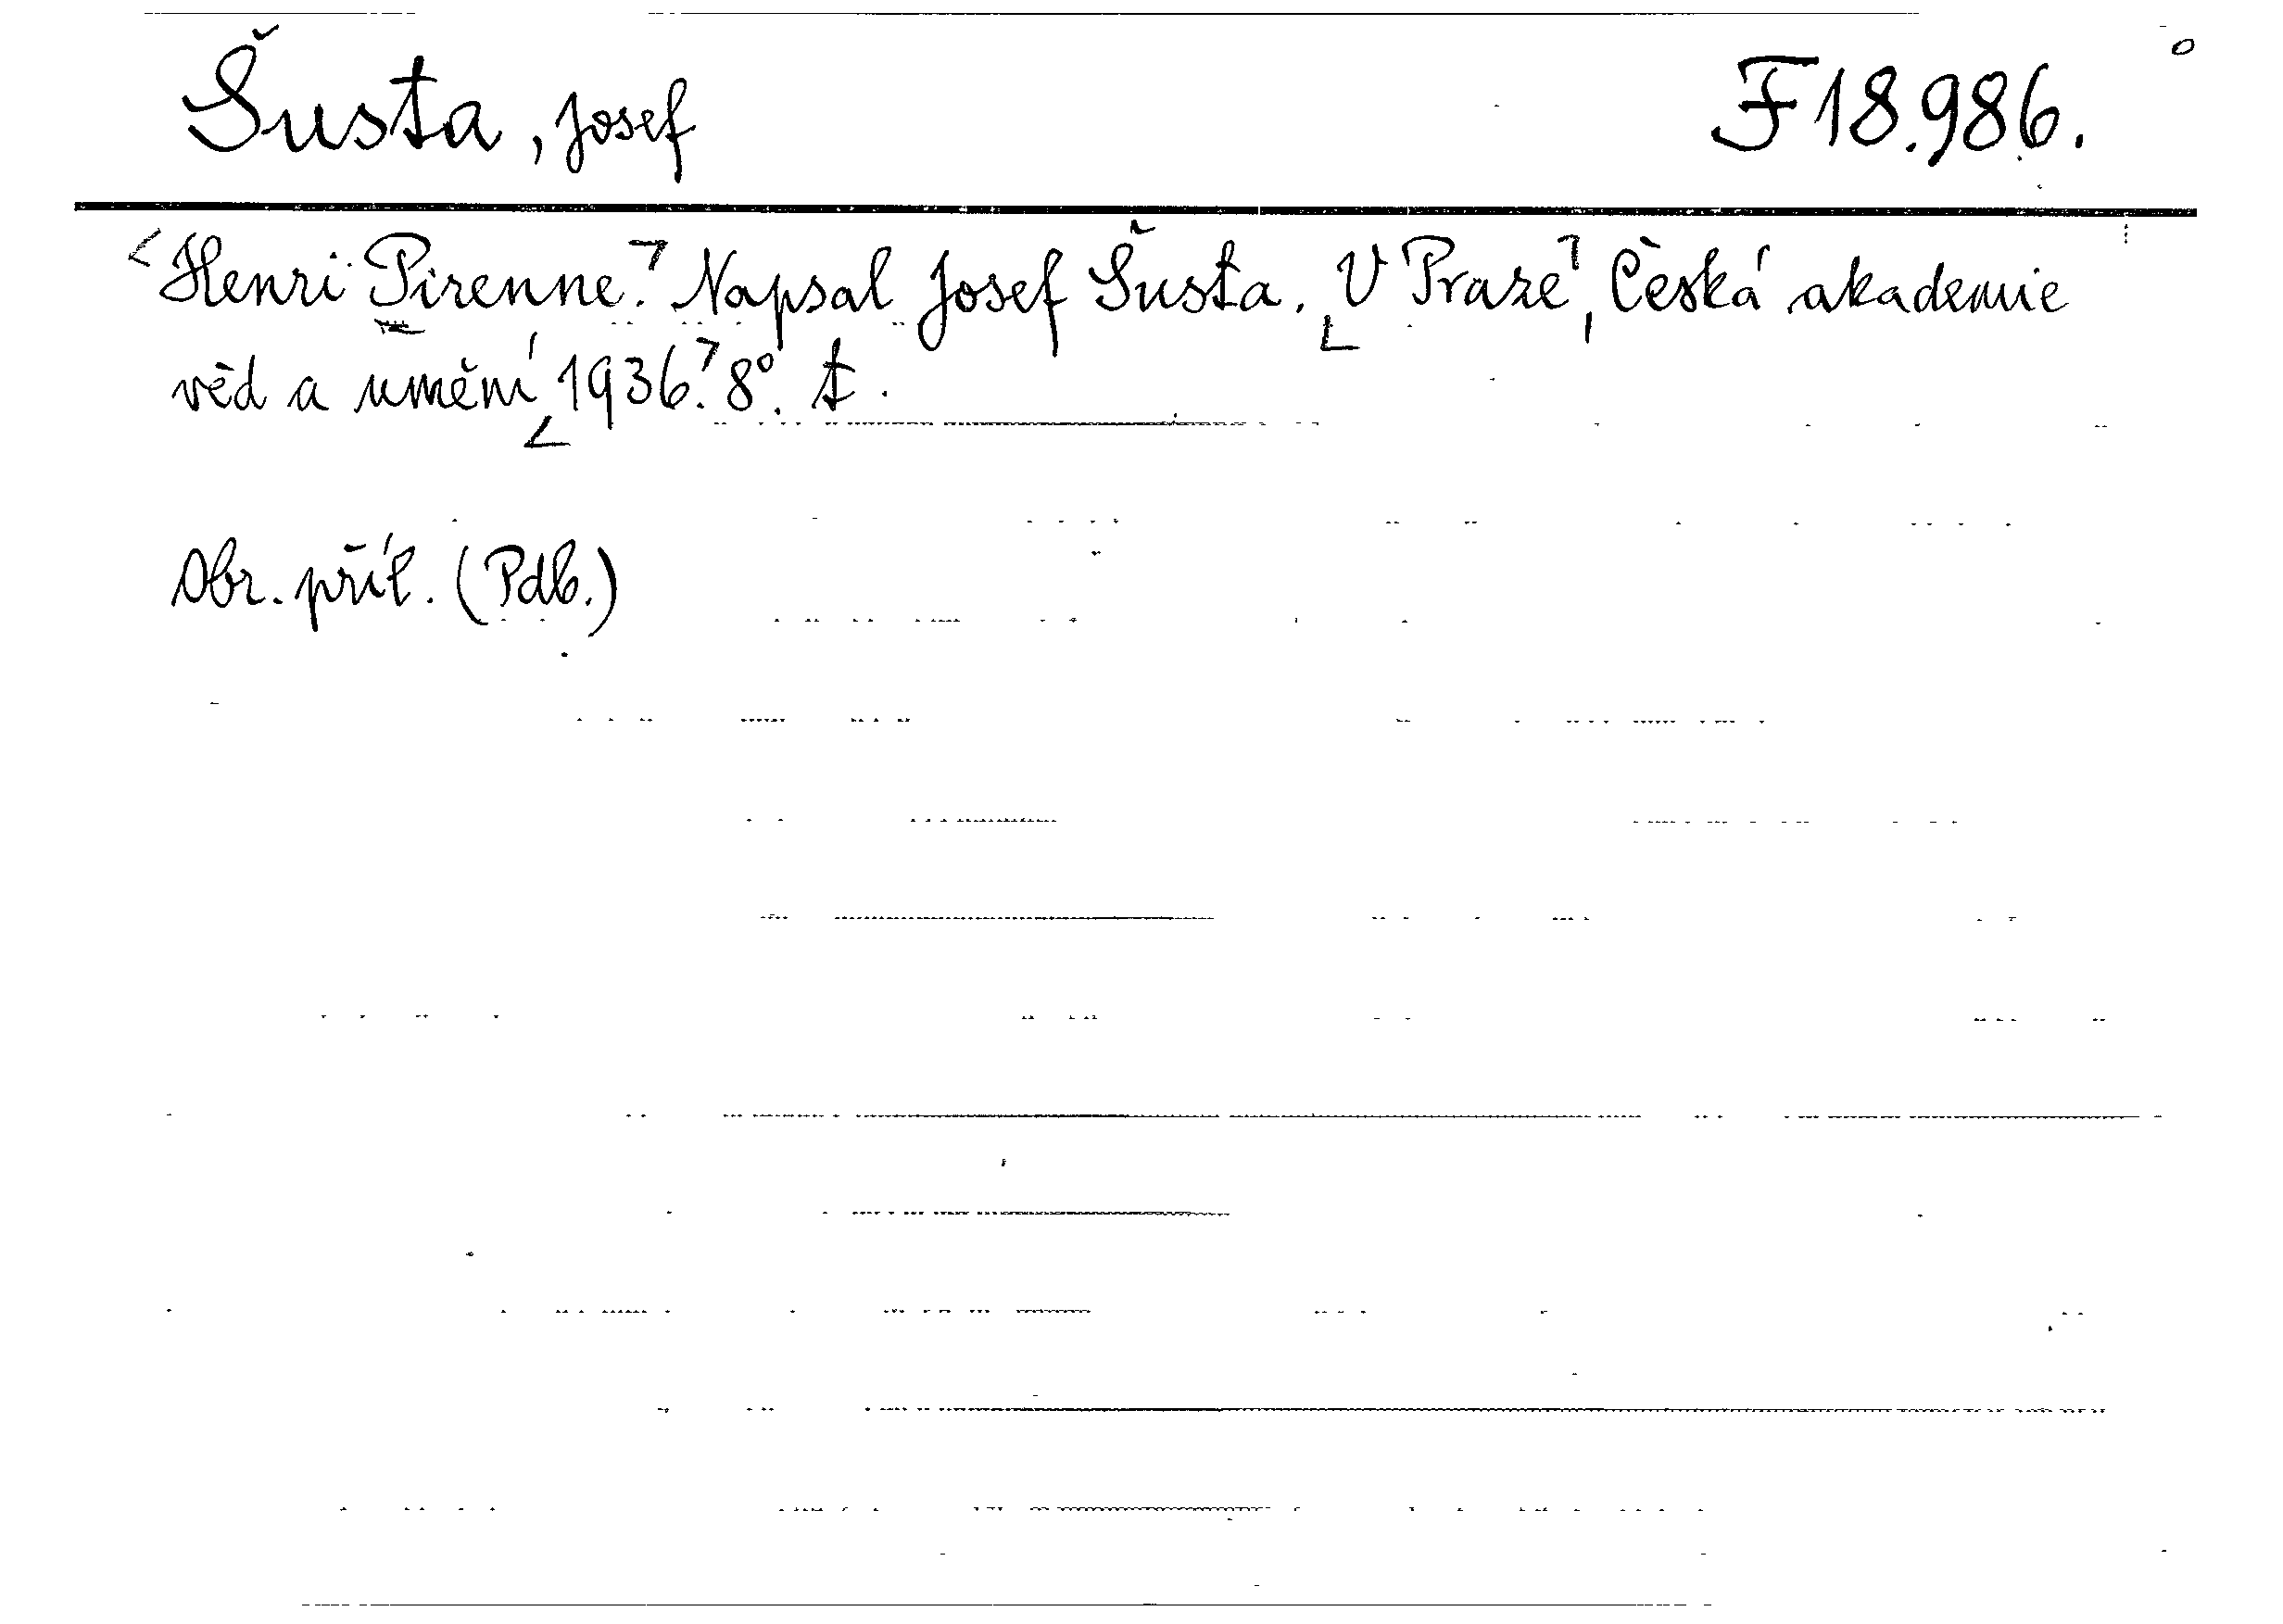 Šusta, Josef F 18.986.
Henri Pirenne. Napsal Josef Šusta. V Praze, Česká akademie
věd a umění 1936. 8°.
Obr. příl. (Pdb.)